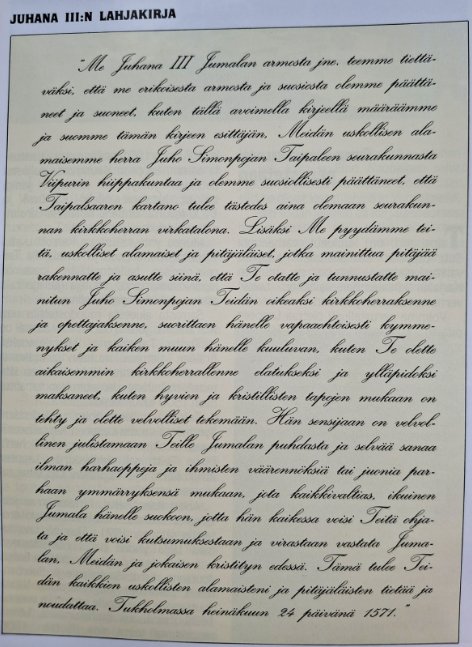 JUHANA III:N LAHJAKIRJA
"Me Juhana III Jumalan armosta jne, teemme tiettä-
väksi, että me erikoisesta armosta ja suosiosta olemme päättä-
neet ja suoneet, kuten tällä avoimella kirjeellä määräämme
ja suomme tämän kirjeen esittäjän, Meidän uskollisen ala-
maisemme herra Juho Simonpojan Taipaleen seurakunnasta
Viipurin hiippakuntaa ja olemme suosiollisesti päättäneet, että
Taipalsaaren kartano tulee tästedes aina olemaan seurakun-
nan kirkkoherran virkatalona. Lisäksi Me pyydämme tei-
tä, uskolliset alamaiset ja pitäjäläiset, jotka mainittua pitäjää
rakennatte ja asutte siinä, että Te otatte ja tunnustatte mai-
nitun Juho Simonpojan Teidän oikeaksi kirkkoherraksenne
ja opettajaksenne, suorittaen hänelle vapaaehtoisesti kymme-
nykset ja kaiken muun hänelle kuuluvan, kuten Te olette
aikaisemmin kirkkoherrallenne elatukseksi ja ylläpidoksi
maksaneet, kuten hyvien ja kristillisten tapojen mukaan on
tehty ja olette velvolliset tekemään. Hän sensijaan on velvol-
linen julistamaan Teille Jumalan puhdasta ja selvää sanaa
ilman harhaoppeja ja ihmisten väärennöksiä tai juonia par-
haan ymmärryksensä mukaan, jota kaikkivaltias, ikuinen
Jumala hänelle suokoon, jotta hän kaikessa voisi Teitä ohja-
ta ja että voisi kutsumuksestaan ja virastaan vastata Juma-
lan, Meidän ja jokaisen kristityn edessä. Tämä tulee Tei-
dän kaikkien uskollisten alamaisteni ja pitäjäläisten tietää ja
noudattaa. Tukholmassa heinäkuun 24 päivänä 1571."